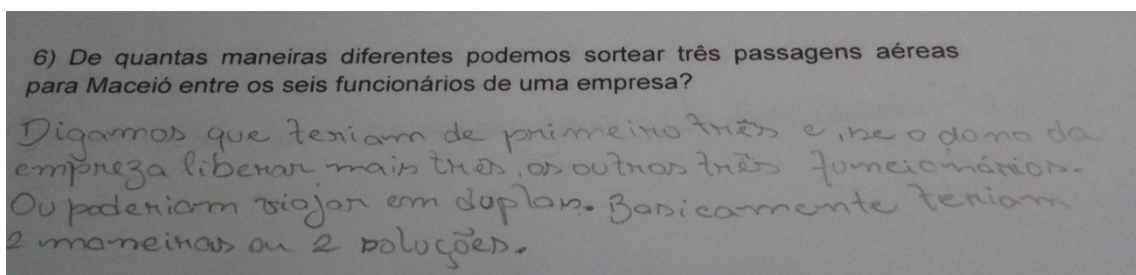 6) De quantas maneiras diferentes podemos sortear três passagens aéreas
para Maceió entre os seis funcionários de uma empresa?
Digamos que teriam de primeiro três e, se o dono da
empreza liberar mais três, os outros três fumcionários.
Ou poderiam viajar em duplas. Basicamente teriam
2 maneiras ou 2 soluções.